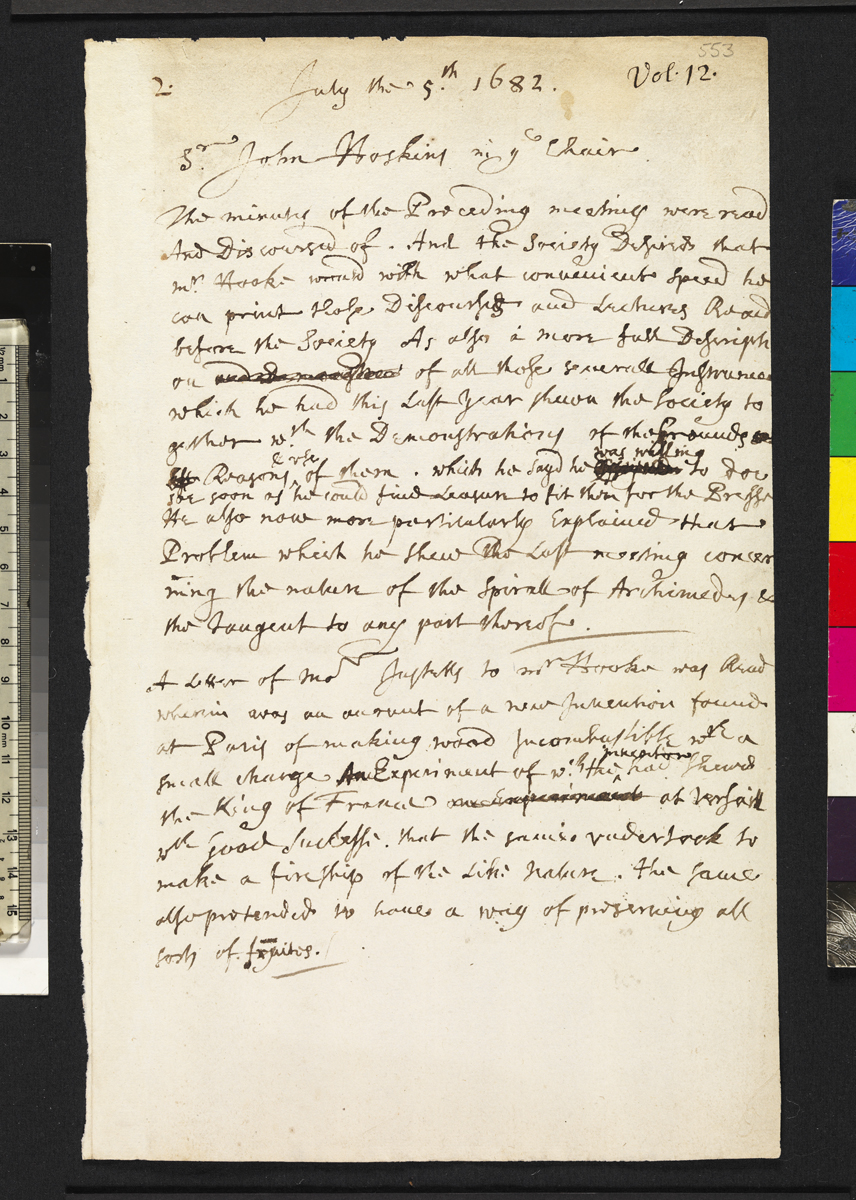 553
2. July the 5.th 1682. Vol. 12.
Sr. John Hoskins in ye Chair.
The minutes of the Preceding meeting were read
And Discoursed of. And the Society Desired that
mr. Hooke would with what convenient speed he
can print those Discourses and Lectures Read
before the Society As also a more full Descripti
on of all those severall Instrumen
which he had this Last year shewn the Society to
gether wth. the Demonstrations of the Grounds
& use was willing
Reasons of them. which he sayd he to doe
soe soon as he could find Leasure to fit them for the Presse
He also now more particularly Explained that
Problem which he shew the Last meeting concer
ning the nature of the Spirall of Archimedes &
the Tangent to any part thereof.
A Letter of Mor Justells to mr Hooke was Read
wherein was an account of a new Invention found
at Paris of making wood Incombustible wth a
inventor
small charge An Experiment of wch the had shewd
the King of France an Experiment at Versaill
wth good Successe. that the same undertook to
make a fireship of the Like nature. the same
also pretended to have a way of preserving all
sorts of fruites.